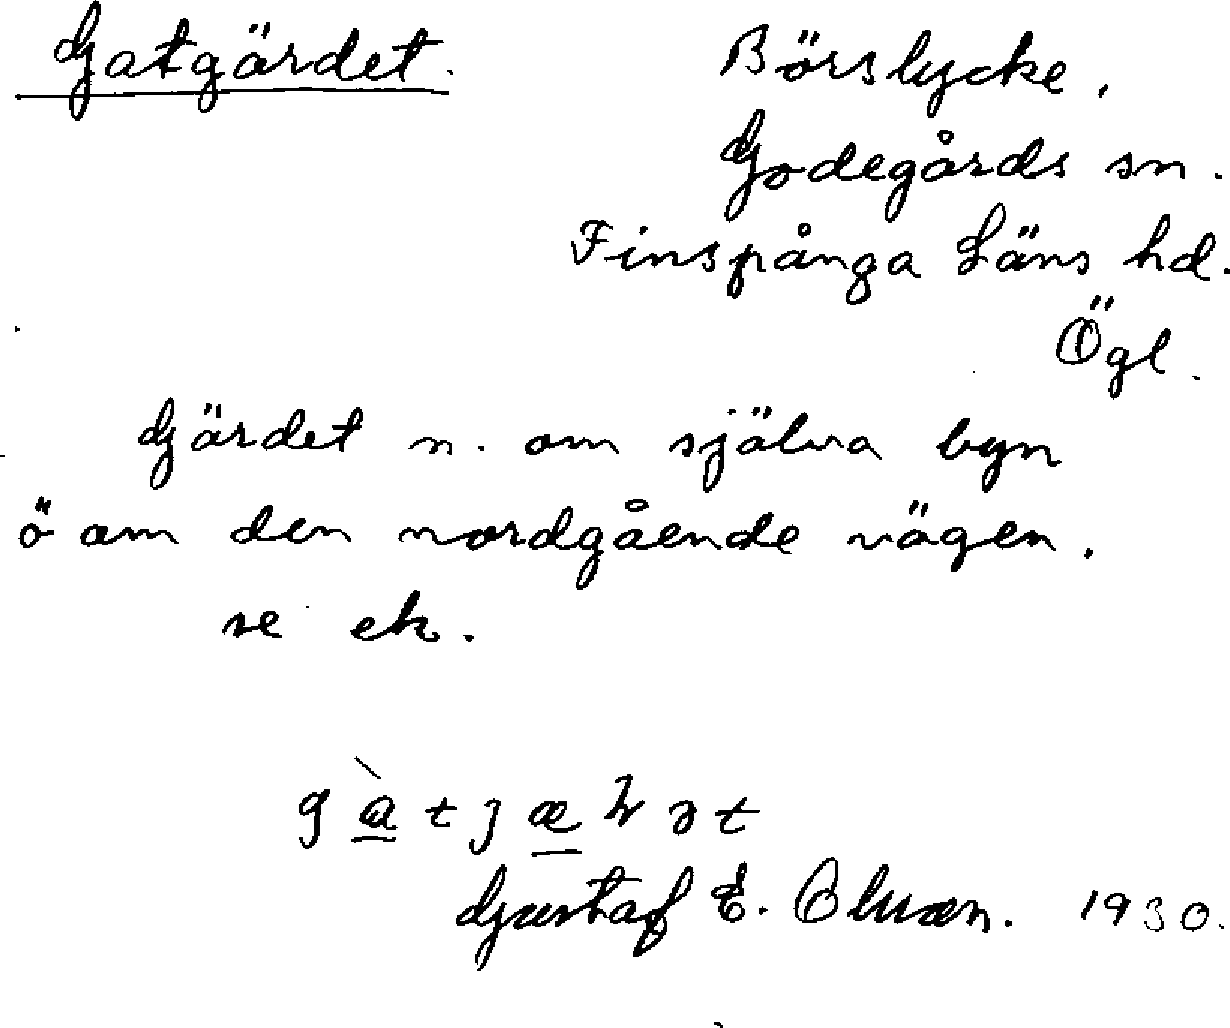 Gatgärdet.
Börslycke,
Godegårds sn.
Finspånga Läns hd.
Ögl.
Gärdet n. om själva byn
ö om den nordgående vägen.
se ek.
Gustaf E. 1930.